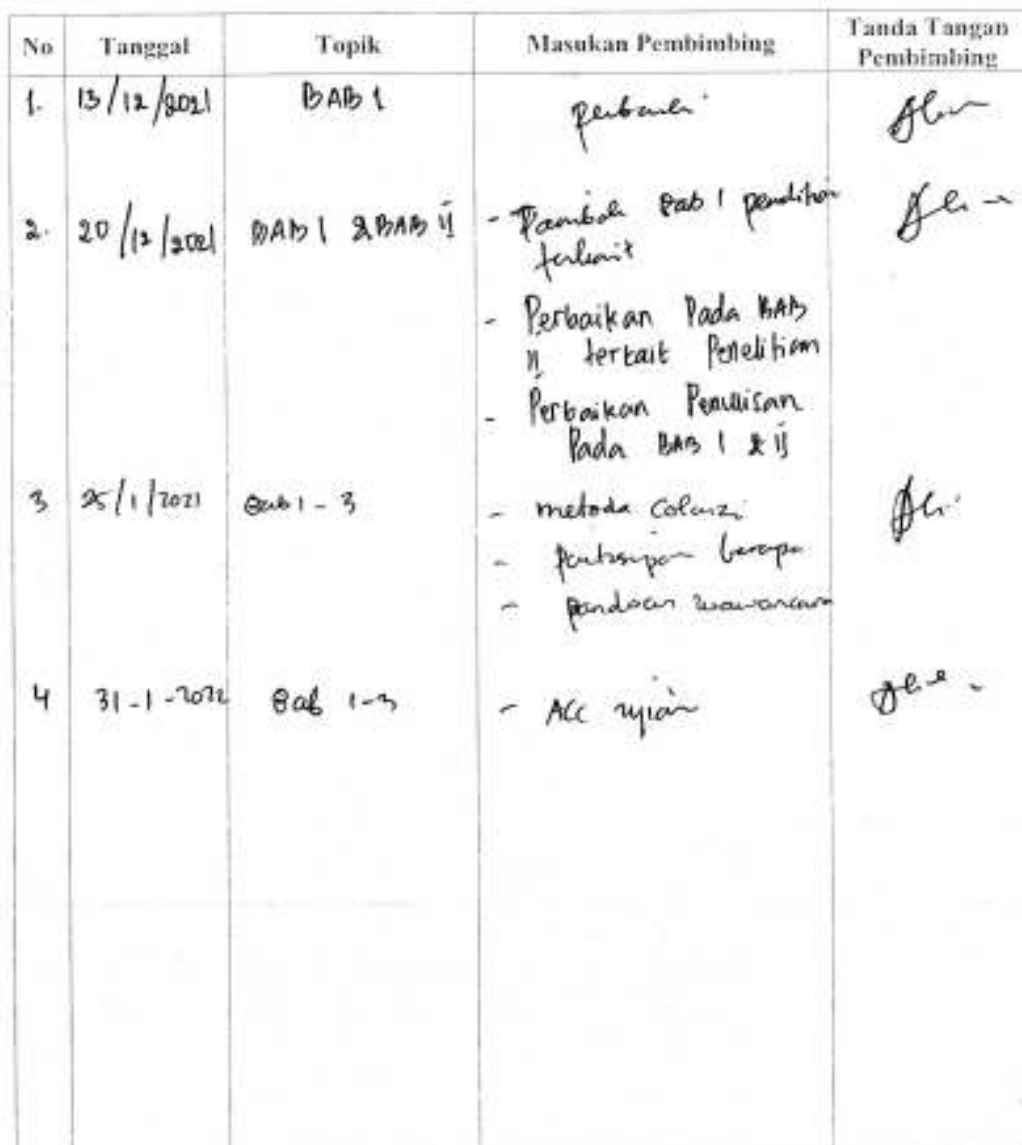 No Tanggal Topik Masukan Pembimbing Tanda Tangan Pembimbing
1. 13/12/2021 BAB 1 perbaiki
2. 20/12/2021 BAB 1 & BAB ii - Tambah Bab 1 penelitian
terkait
- Perbaikan Pada BAB
ii terkait Penelitian
- Perbaikan Penulisan
Pada BAB 1 & ii
3 25/1/2021 Bab 1 - 3 - metoda Colaizi
- partisipan berapa
- panduan wawancara
4 31-1-2022 Bab 1-3 - ACC ujian